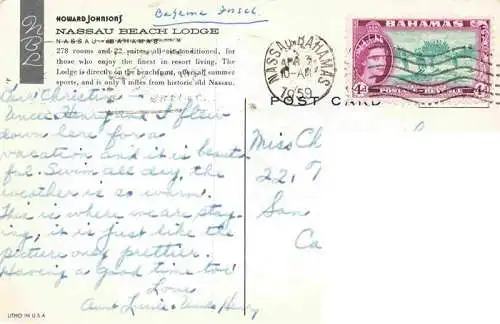 HOWARD JOHNSON'S
NASSAU BEACH LODGE
NASSAU • BAHAMAS
278 rooms and 22 suites, all air conditioned, for
those who enjoy the finest in resort living. The
Lodge is directly on the beachfront, offers all summer
sports, and is only 3 miles from historic old Nassau.
NASSAU-BAHAMAS
APR
10-AM
1959
BAHAMAS
4d
4d
POST CARD
Dear Christie
Uncle Henry and I flew
down here for a
vacation and it is beauti
ful. Swim all day, the
weather is so warm.
This is where we are stay-
ing, it is just like the
picture only prettier.
Having a good time too
Love
Aunt Uncle Henry
Miss Ch
221
San
Ca
LITHO IN U.S.A.